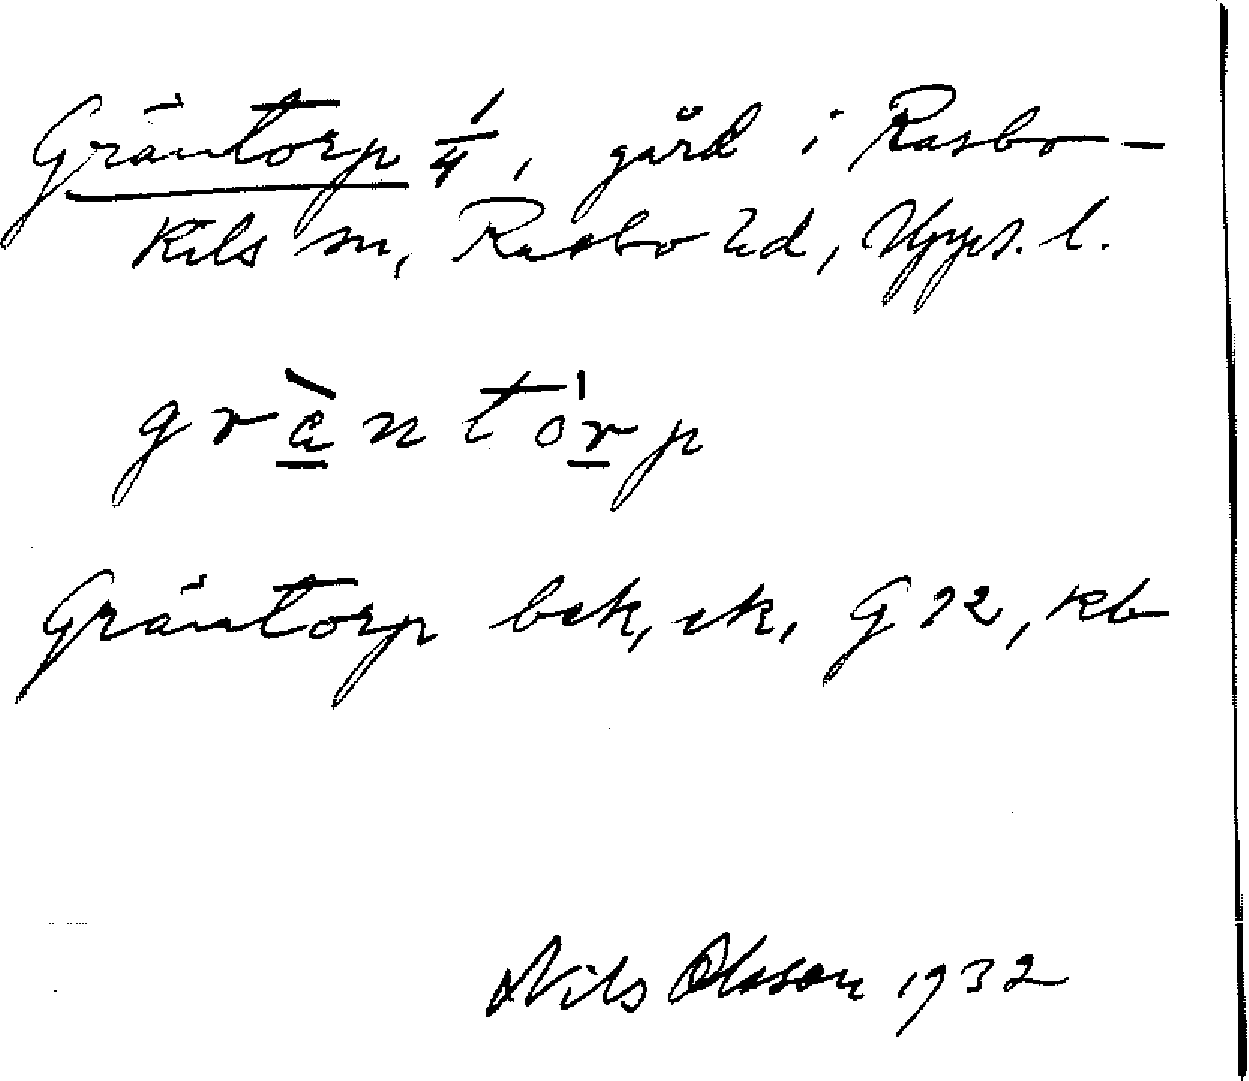 Gräntorp 1/4, gård i Rasbo-
Kils sn, Rasbo hd, Upps. l.
gràntórp
Gräntorp bek, ek, G 92, kb
Nils Olsson 1932